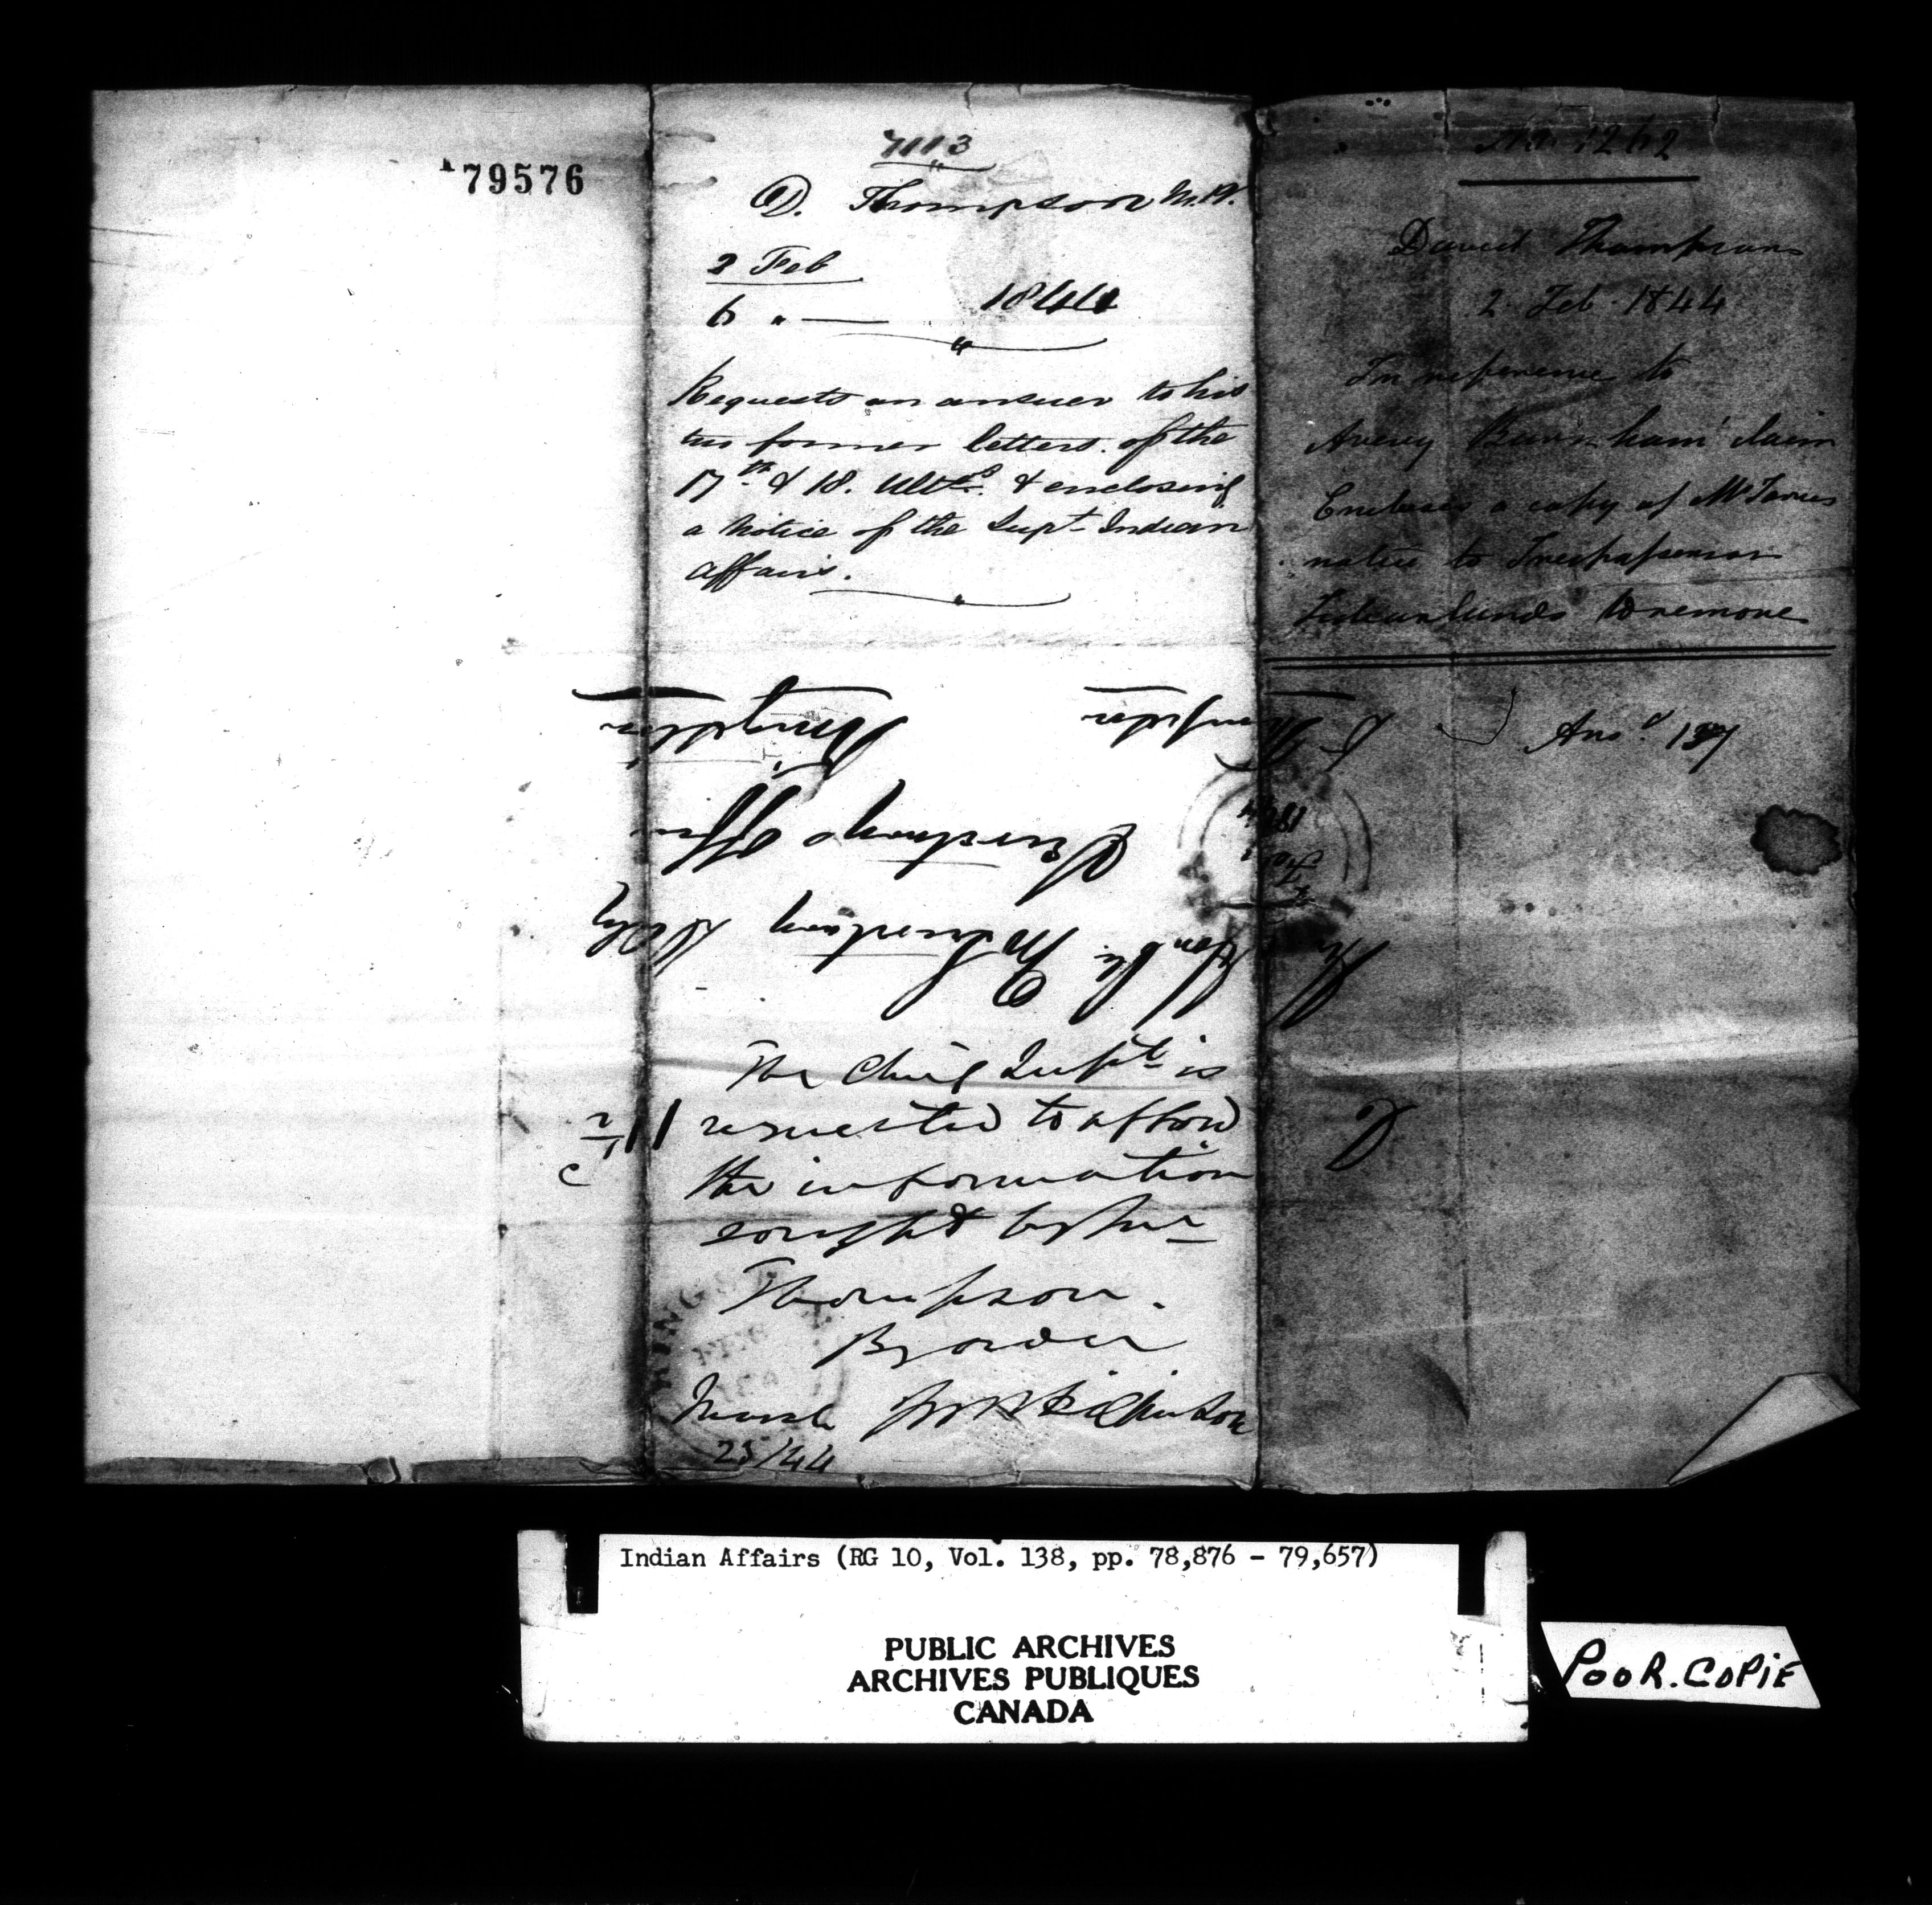 79576
7113
D. Thompson M.P.
2 Feb
6 " — 1844
Requests an answer to his
two former letters of the
17th & 18. Ulto. & enclosing
a Notice of the Supt Indian
Affairs.
The Chief Supt is
requested to afford
the information
sought by Mr
Thompson.
By order
March
25/44
No. 1262
David Thompson
2 Feb. 1844
In reference to
Avery Burnham' claim
Encloses a copy of Mr Jarvis
notice to Trespassers on
Indian lands to remove
Ansd 137
D Thompson
Kingston
Secretary's Office
The Honble. Secretary Daly
Indian Affairs (RG 10, Vol. 138, pp. 78,876 - 79,657)
PUBLIC ARCHIVES
ARCHIVES PUBLIQUES
CANADA
POOR.COPIE